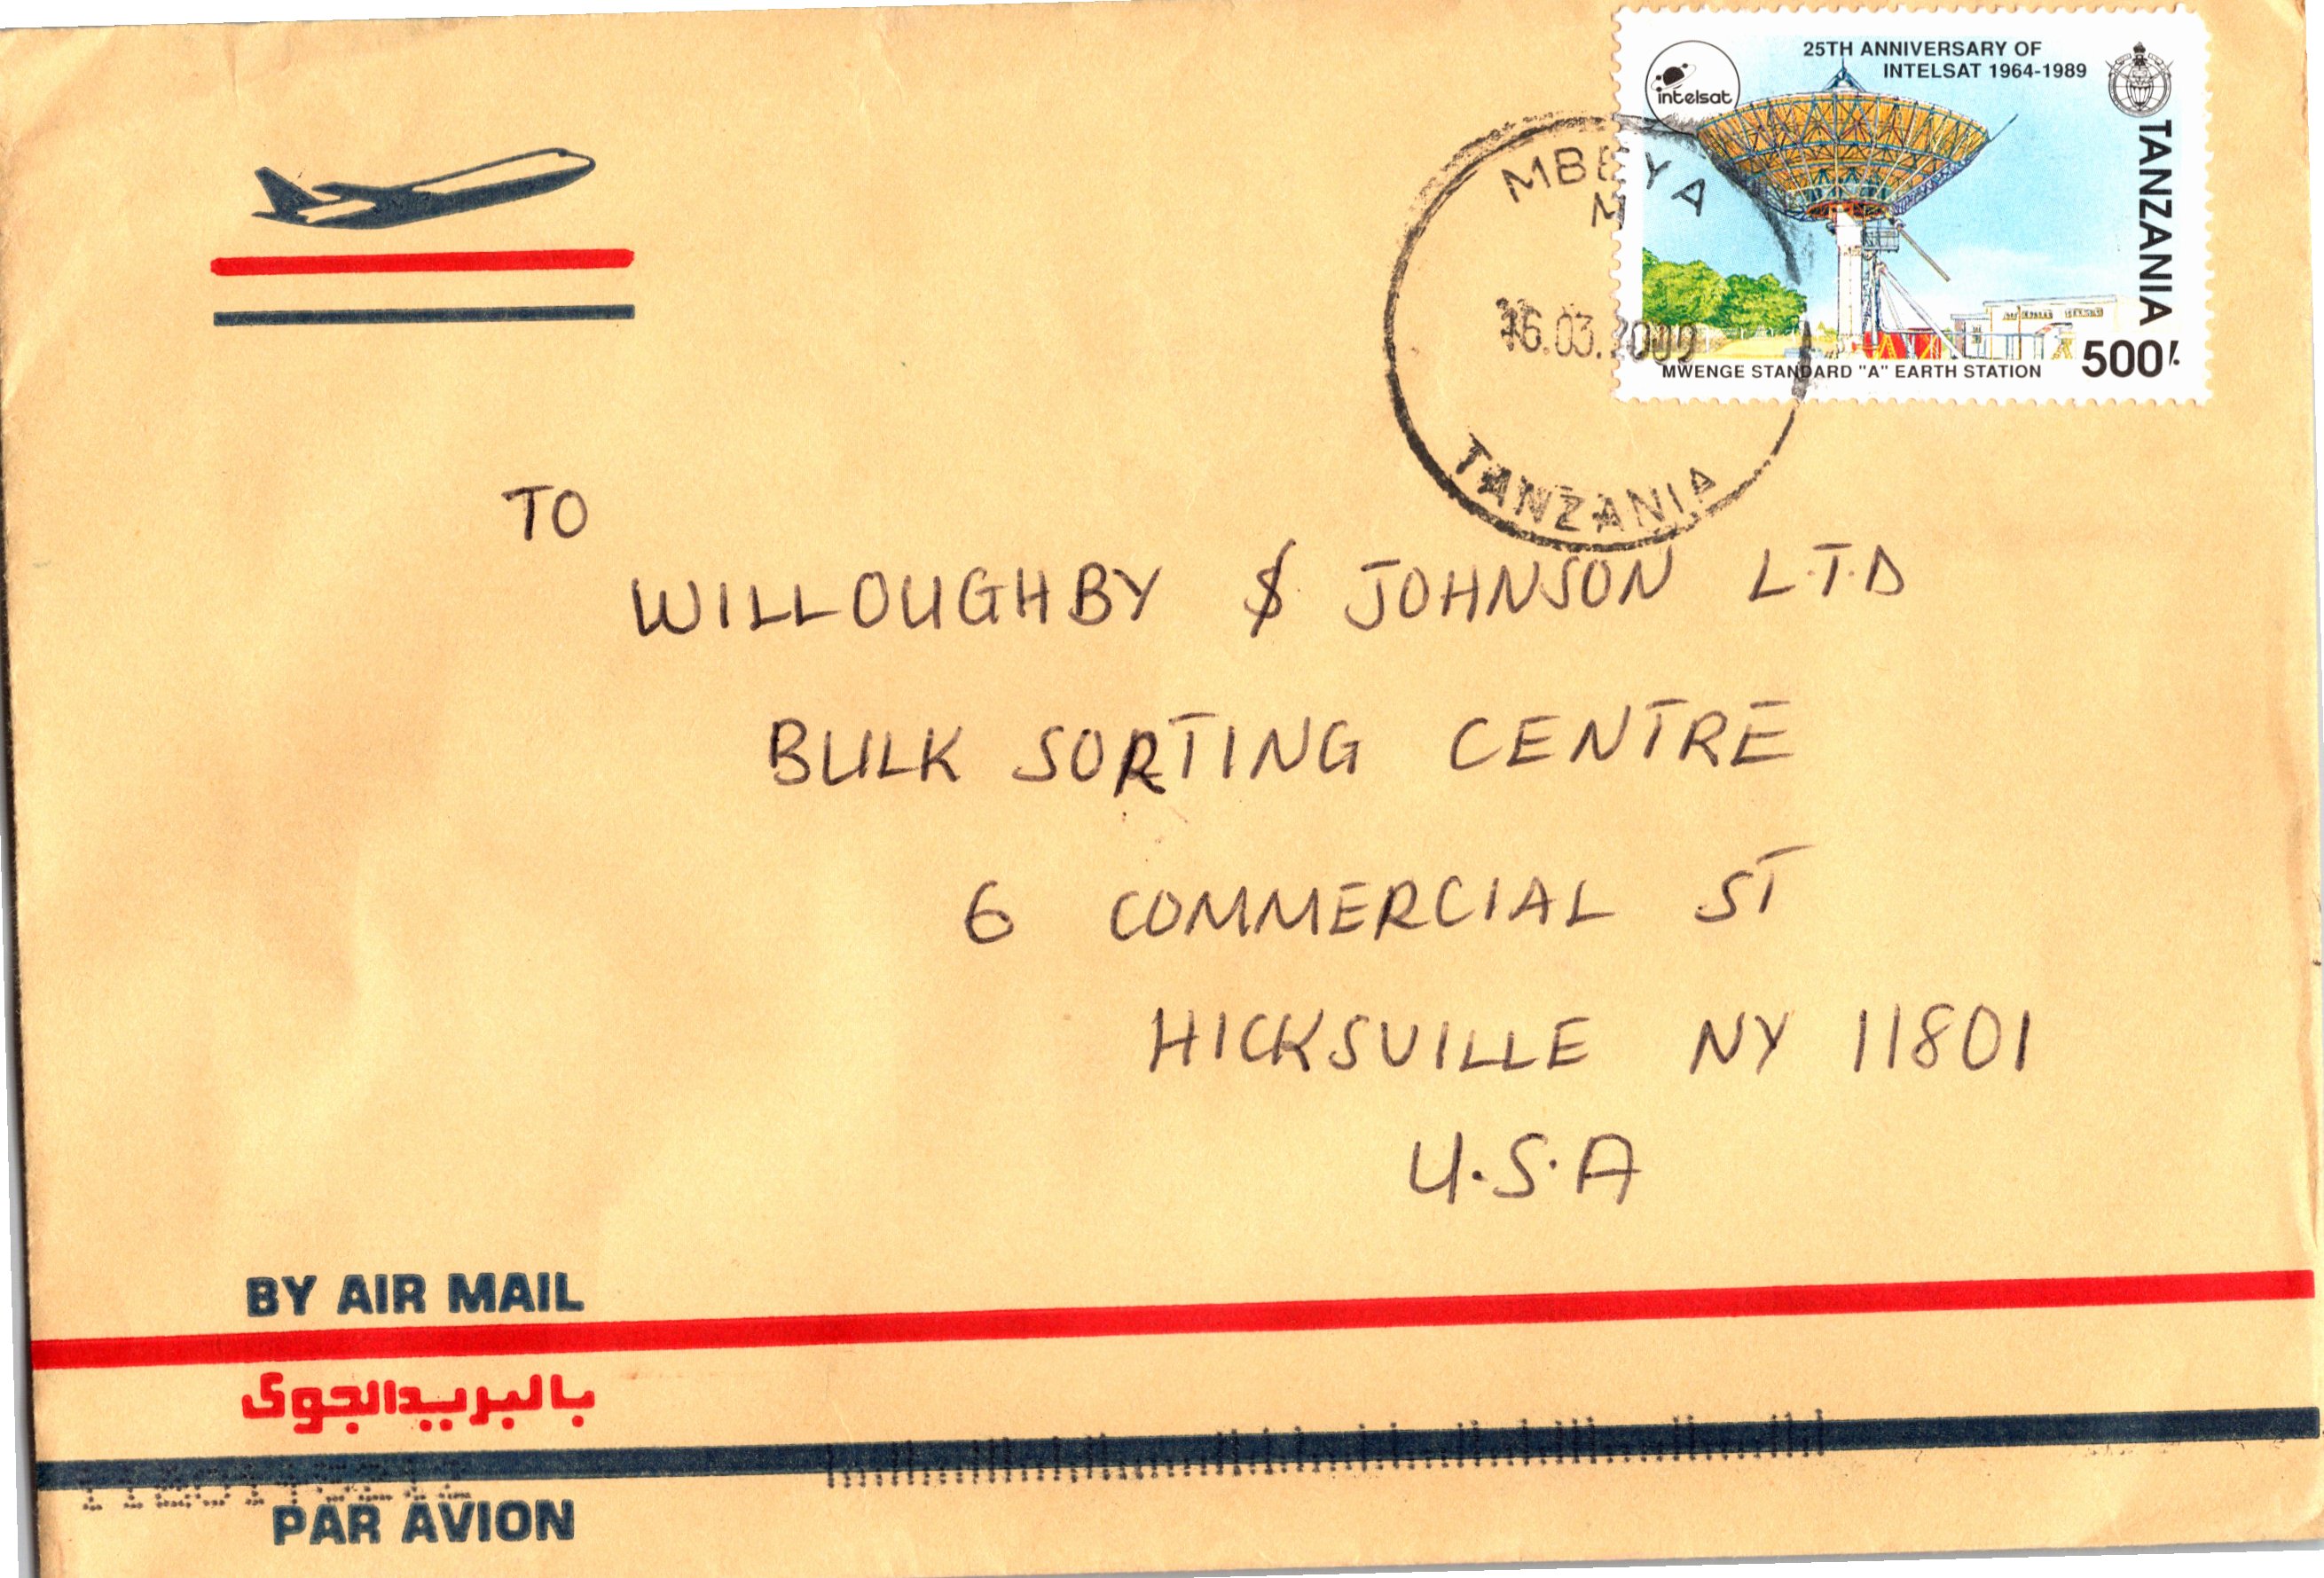 25TH ANNIVERSARY OF
INTELSAT 1964-1989
intelsat
TANZANIA
MBEYA
16.03.2000
TANZANIA
MWENGE STANDARD "A" EARTH STATION
500/-
TO
WILLOUGHBY & JOHNSON L.T.D
BULK SORTING CENTRE
6 COMMERCIAL ST
HICKSVILLE NY 11801
U.S.A
BY AIR MAIL
بالبريد الجوى
PAR AVION